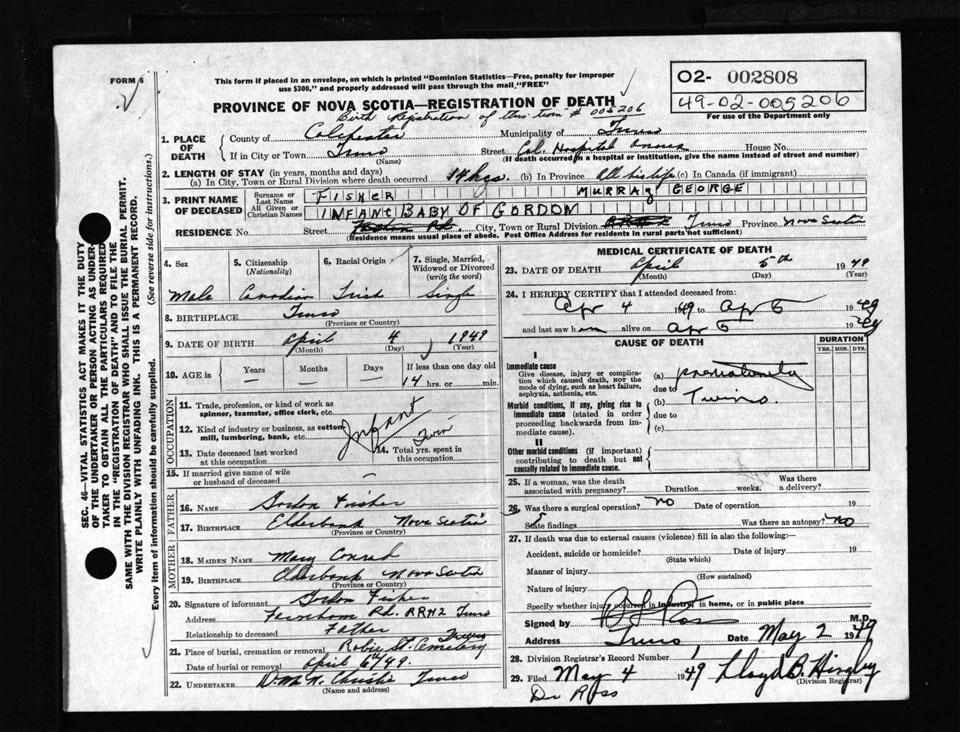 FORM 6
This form if placed in an envelope, on which is printed "Dominion Statistics—Free, penalty for improper
use $300," and properly addressed will pass through the mail "FREE"
02- 002808
49-02-005206
For use of the Department only
PROVINCE OF NOVA SCOTIA—REGISTRATION OF DEATH
Birth Registration of this # 005206
1. PLACE OF DEATH
County of Colchester Municipality of Truro
If in City or Town Truro (Name) Street Col. Hospital House No.
(If death occurred in a hospital or institution, give the name instead of street and number)
2. LENGTH OF STAY (in years, months and days)
(a) In City, Town or Rural Division where death occurred 14 hrs. (b) In Province All his life (c) In Canada (if immigrant)
3. PRINT NAME OF DECEASED
Surname or Last Name FISHER MURRAY GEORGE
All Given or Christian Names INFANT BABY OF GORDON
RESIDENCE No. Street Rd. City, Town or Rural Division Truro Province Nova Scotia
(Residence means usual place of abode. Post Office Address for residents in rural parts not sufficient)
4. Sex Male
5. Citizenship (Nationality) Canadian
6. Racial Origin Irish
7. Single, Married, Widowed or Divorced (write the word) Single
8. BIRTHPLACE Truro
(Province or Country)
9. DATE OF BIRTH April 4 1949
(Month) (Day) (Year)
10. AGE in Years — Months — Days If less than one day old
14 hrs. or min.
OCCUPATION
11. Trade, profession, or kind of work as spinner, teamster, office clerk, etc.
12. Kind of industry or business, as cotton mill, lumbering, bank, etc.
Infant
Twin
13. Date deceased last worked at this occupation
14. Total yrs. spent in this occupation
15. If married give name of wife or husband of deceased —
FATHER
16. NAME Gordon Fisher
17. BIRTHPLACE Elderbank Nova Scotia
(Province or Country)
MOTHER
18. MAIDEN NAME Mary Conrad
19. BIRTHPLACE Elderbank Nova Scotia
(Province or Country)
20. Signature of informant Gordon Fisher
Address Rd. RR#2 Truro
Relationship to deceased Father
21. Place of burial, cremation or removal Robie St. Cemetery Truro
Date of burial or removal April 6th/49
22. UNDERTAKER Christie Truro
(Name and address)
MEDICAL CERTIFICATE OF DEATH
23. DATE OF DEATH April 5th 1949
(Month) (Day) (Year)
24. I HEREBY CERTIFY that I attended deceased from:
Apr 4 1949 to Apr 5 1949
and last saw him alive on Apr 5 1949
CAUSE OF DEATH
DURATION
YRS. MOS. DYS.
I
Immediate cause
Give disease, injury or complication which caused death, not the mode of dying, such as heart failure, asphyxia, asthenia, etc.
(a) prematurity
due to
Morbid conditions, if any, giving rise to immediate cause (stated in order proceeding backwards from immediate cause).
(b) Twins.
due to
(c)
II
Other morbid conditions (if important) contributing to death but not causally related to immediate cause.
25. If a woman, was the death associated with pregnancy? Duration weeks. Was there a delivery?
26. Was there a surgical operation? no Date of operation 19
State findings Was there an autopsy? no
27. If death was due to external causes (violence) fill in also the following:—
Accident, suicide or homicide? Date of injury 19
(State which)
Manner of injury
(How sustained)
Nature of injury
Specify whether injury occurred in industry, in home, or in public place
Signed by Ross M.D.
Address Truro Date May 2 1949
28. Division Registrar's Record Number
29. Filed May 4 1949 Lloyd B. Hingley
(Division Registrar)
Dr Ross
SEC. 46—VITAL STATISTICS ACT MAKES IT THE DUTY
OF THE UNDERTAKER OR PERSON ACTING AS UNDERTAKER TO OBTAIN ALL THE PARTICULARS REQUIRED
IN THE "REGISTRATION OF DEATH" AND TO FILE THE
SAME WITH THE DIVISION REGISTRAR WHO SHALL ISSUE THE BURIAL PERMIT.
WRITE PLAINLY WITH UNFADING INK. THIS IS A PERMANENT RECORD.
Every item of information should be carefully supplied. (See reverse side for instructions.)